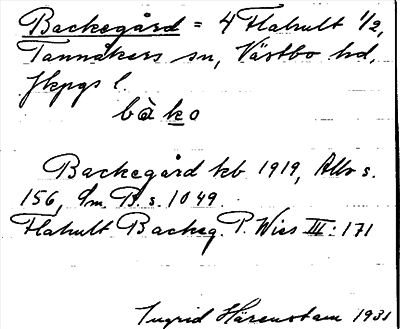 Backegård = 4 Flahult 1/2,
Tannåkers sn, Västbo hd,
Jkpgs l.
bà k o
Backegård kb 1919, Allb s.
156, Jm B. s. 1049.
Flahult Backeg. P. Wies III: 171
Ingrid Härenstam 1931